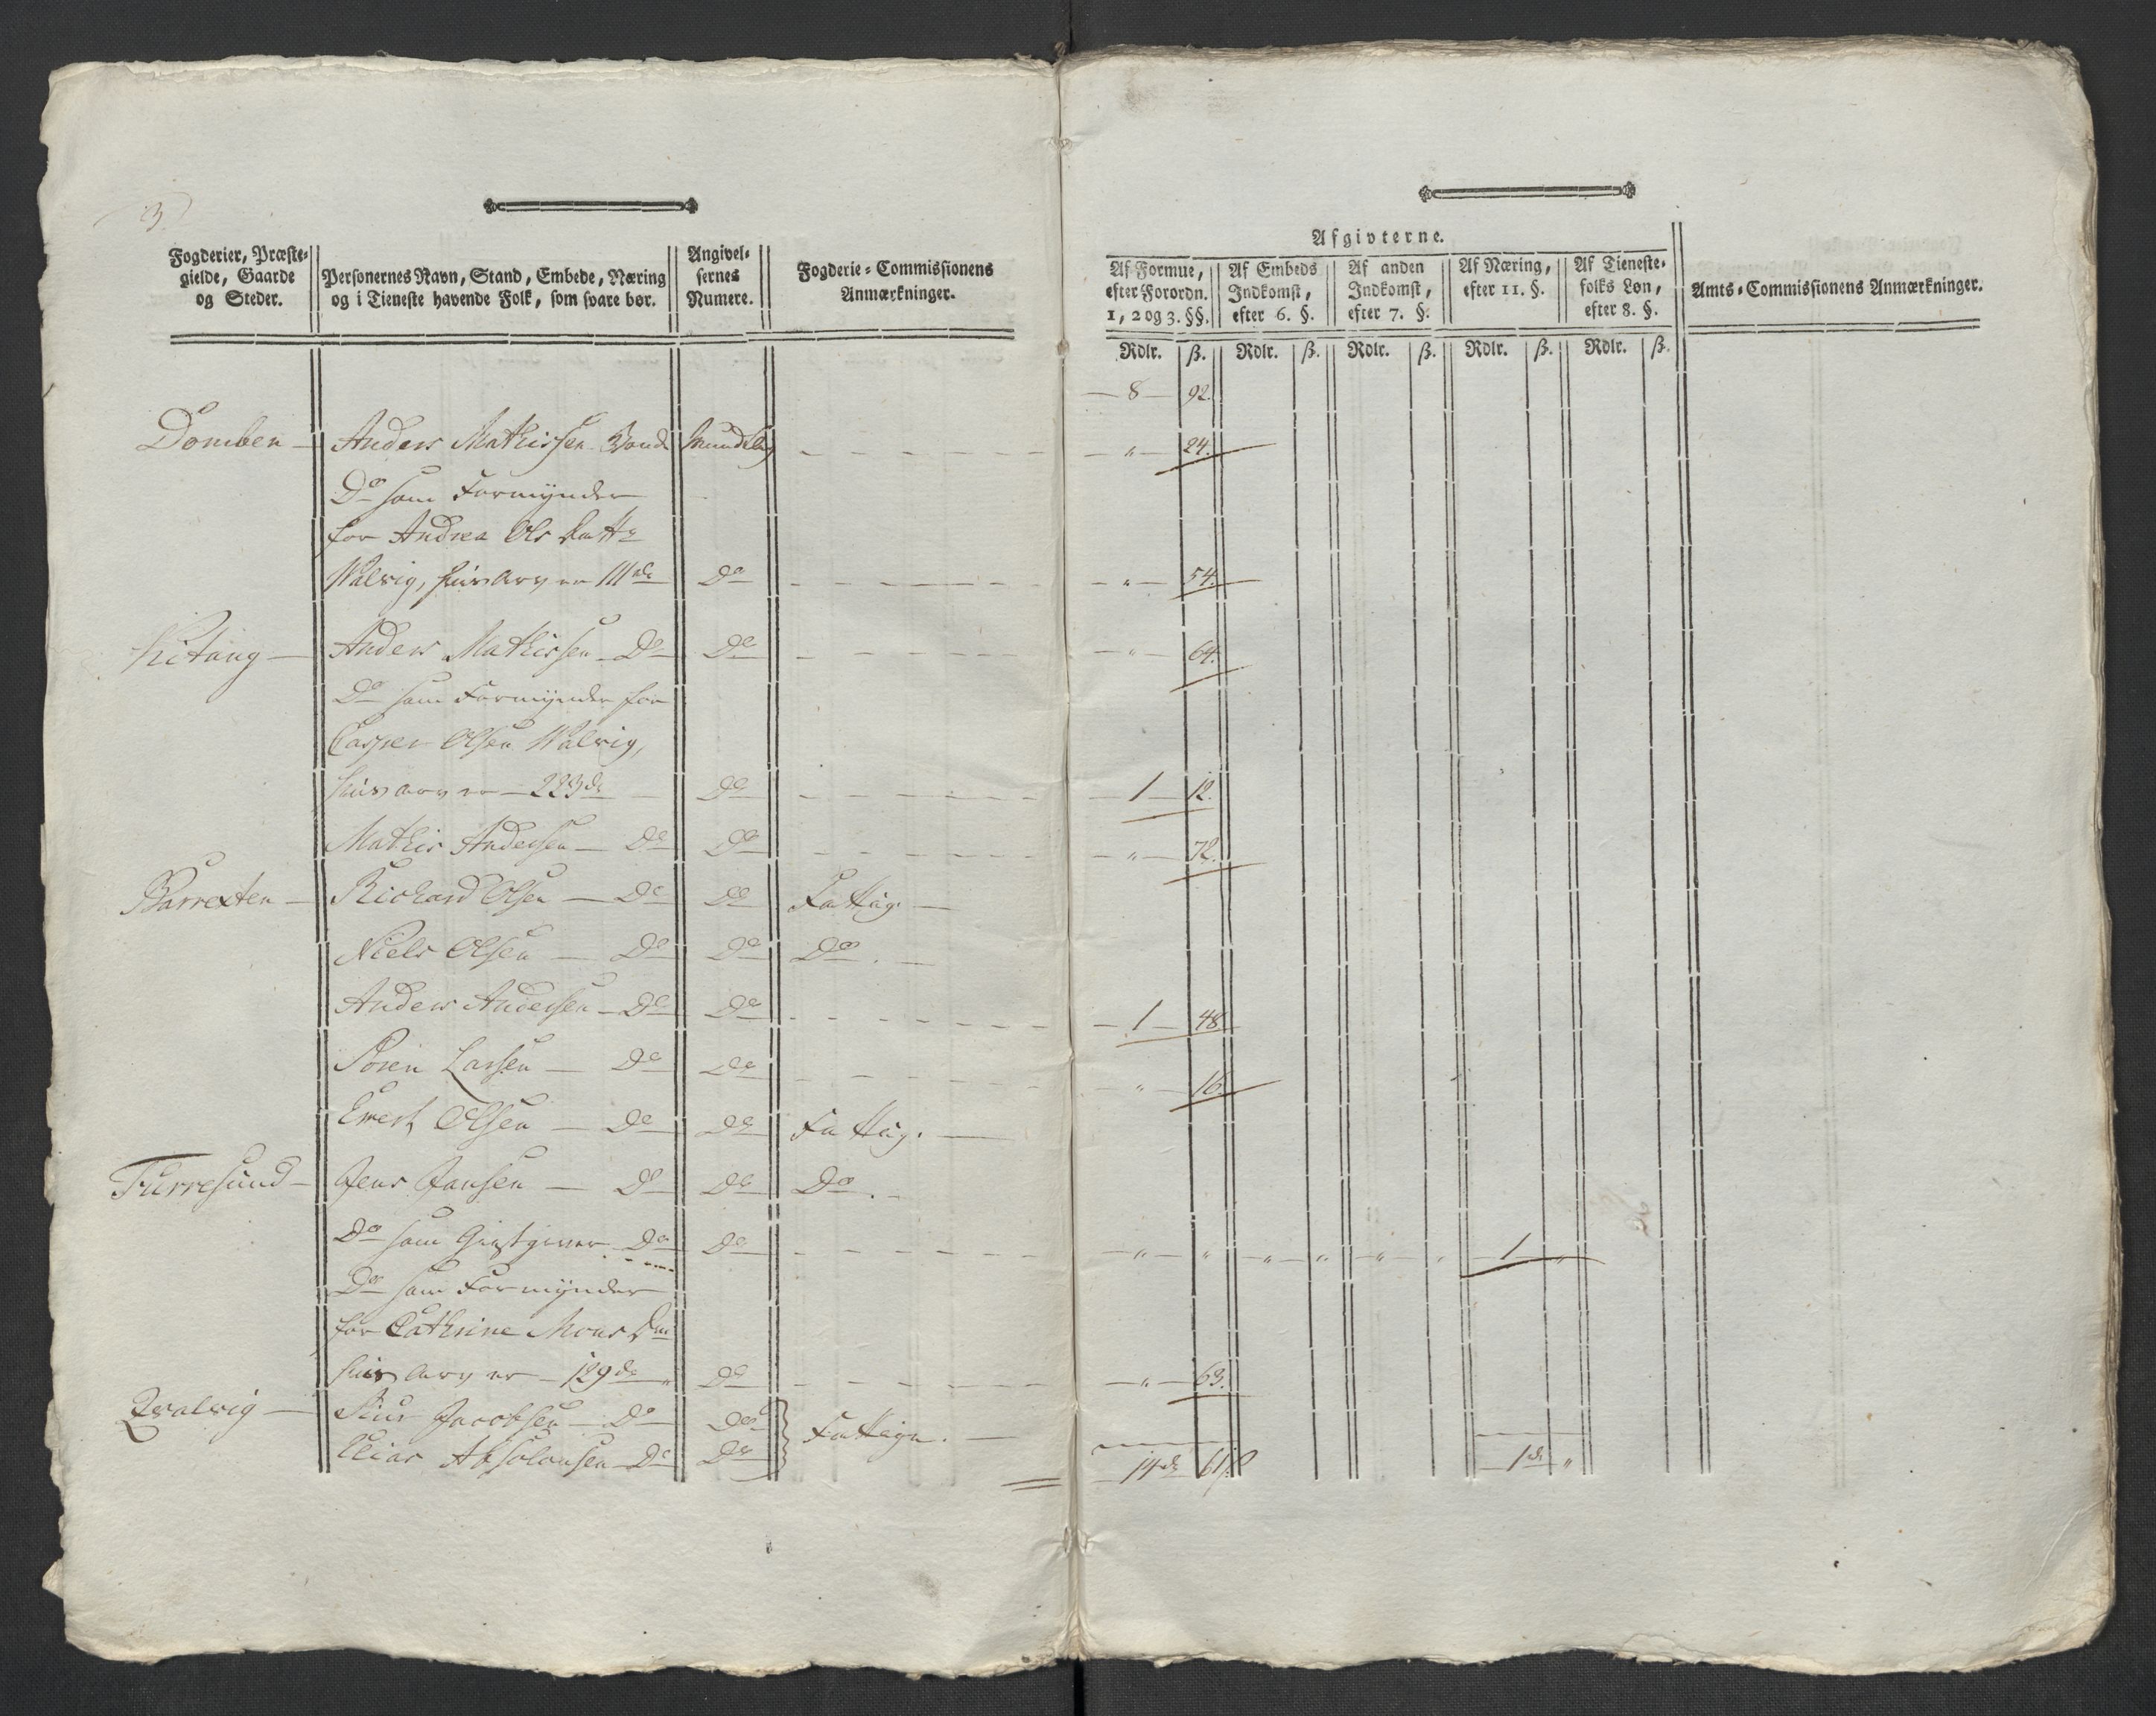 3.
Fogderier, Præste-
gielde, Gaarde
og Steder.
Personernes Navn, Stand, Embede, Næring
og i Tieneste havende Folk, som svare bør.
Angivel-
sernes
Numere.
Fogderie-Commissionens
Anmærkninger.
Afgivterne.
Af Formue,
efter Forordn.
1, 2 og 3. §§.
Af Embeds
Indkomst,
efter 6. §.
Af anden
Indkomst,
efter 7. §.
Af Næring,
efter 11. §.
Af Tieneste-
folks Løn,
efter 8. §.
Amts-Commissionens Anmærkninger.
Rdlr. ß. Rdlr. ß. Rdlr. ß. Rdlr. ß. Rdlr. ß.
— 8 — 92.
Domben — Anders Mathissen Bonde Mundtlig — „ — 24.
Do som Formÿnder
for Andrea Ols Datter
Walvig, hvis Arv er 111 rd Do — „ — 54.
Anders Mathissen Do Do — „ — 64.
Do som Formÿnder for
Casper Olsen Walvig,
hvis Arv er — 223 rd Do — 1 — 12.
Mathis Andersen — Do Do — „ — 72.
Barrexten — Richard Olsen — Do Do Fattig. —
Niels Olsen — Do Do Do. —
Anders Andersen — Do Do — 1 — 48.
Søren Larsen — Do Do — „ — 16.
Ewert Olsen — Do Do Fattig. —
Furresund — Jens Jansen — Do Do Do. —
Do som Giestgiver Do Do — „ — „ — „ — „ — „ — „ — 1 „
Do som Formÿnder
for Cathrine Mons Dat
hvis Arv er — 129 rd „ Do — „ — 63.
Qvalvig — Siur Jacobsen — Do Do
Elias Absalonsen Do Do Fattige. —
14 rd 61 ß 1 rd „